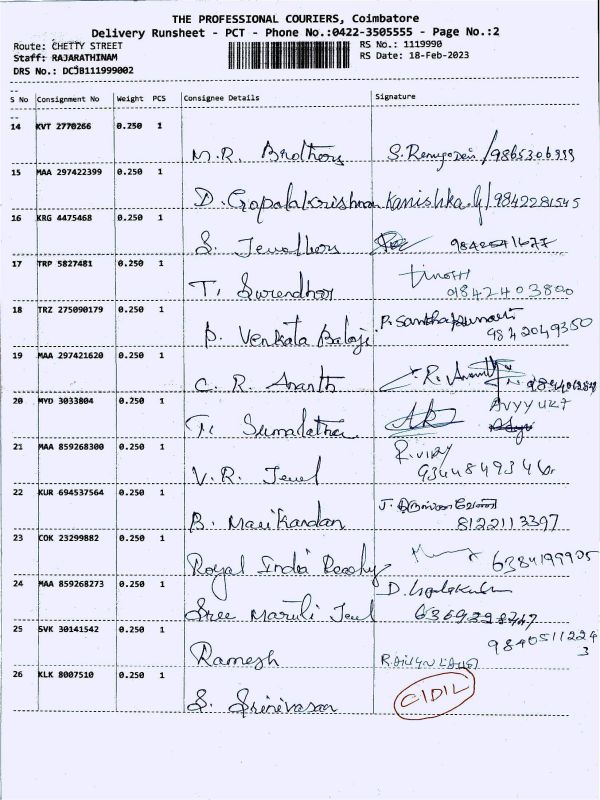 THE PROFESSIONAL COURIERS, Coimbatore
Delivery Runsheet - PCT - Phone No.:0422-3505555 - Page No.:2
Route: CHETTY STREET RS No.: 1119990
Staff: RAJARATHINAM RS Date: 18-Feb-2023
DRS No.: DCJB111999002
S No Consignment No Weight PCS Consignee Details Signature
14 KVT 2770266 0.250 1
M.R. Brothers 9865306999
15 MAA 297422399 0.250 1
D. Gopalakrishnan Kanishka.G/9842281545
16 KRG 4475468 0.250 1
S. Jewellers
17 TRP 5827481 0.250 1
T. Surendhar 9842403800
18 TRZ 275090179 0.250 1
P. Santhakumari
D. Venkata Balaji 9842049350
19 MAA 297421620 0.250 1
C. R. Ananth
20 MYD 3033804 0.250 1
T. Sumalatha
21 MAA 859268300 0.250 1
R. Vijay
V.R. Jewel
22 KUR 694537564 0.250 1
B. Manikandan 8122113397
23 COK 23299882 0.250 1
Royal India 6384199905
24 MAA 859268273 0.250 1
Sree Maruti Jewel
25 SVK 30141542 0.250 1
98405112243
Ramesh
26 KLK 8007510 0.250 1
S. Srinivasan CIDIL